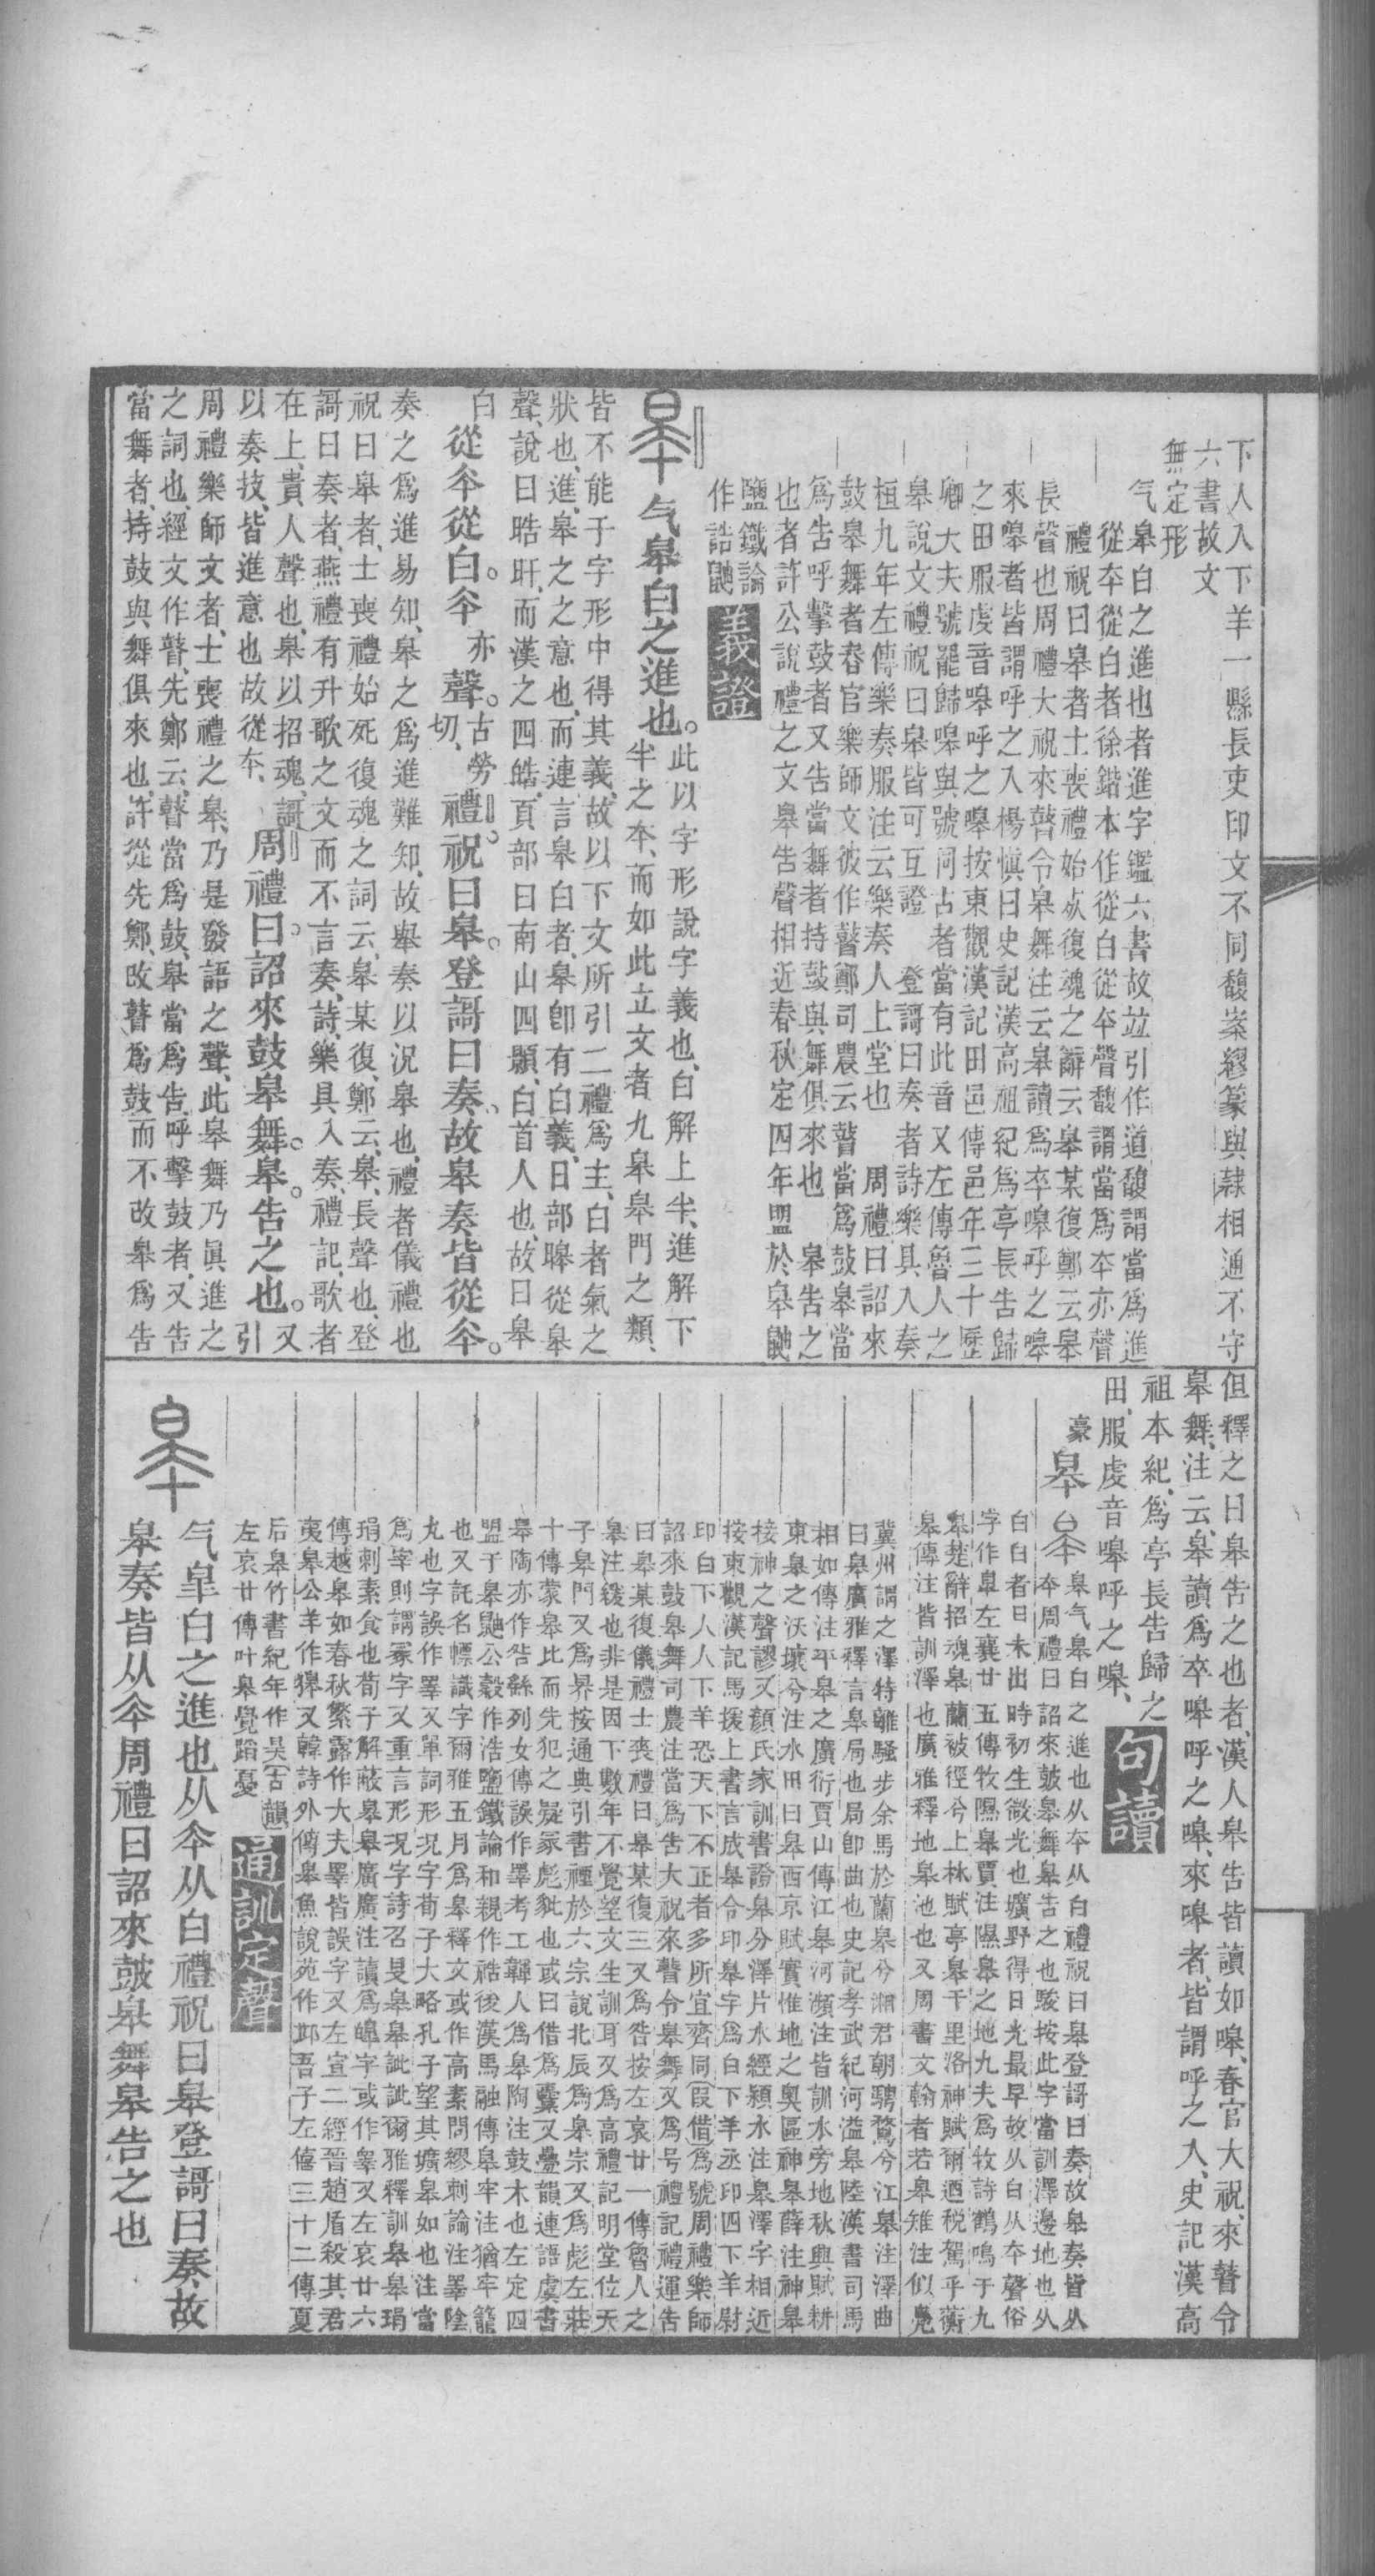 下人人下羊一縣長吏印文不同馥案繆篆與隸相通不守
六書故文
無定形
气皋白之進也者進字鑑六書故竝引作道馥謂當爲進
從夲從白者徐鍇本作從白從夲聲馥謂當爲夲亦聲
禮祝曰皋者士喪禮始𣦸復魂之辭云皋某復鄭云皋
長聲也周禮大祝來瞽令皋舞注云皋讀爲卒嘷呼之嘷
來嘷者皆謂呼之入楊愼曰史記漢高祖紀爲亭長告歸
之田服虔音嘷呼之嘷按東觀漢記田邑傳邑年三十歷
卿大夫號罷歸嘷與號同古者當有此音又左傳魯人之
皋說文禮祝曰皋皆可互證　登謌曰奏者詩樂具入奏
桓九年左傳樂奏服注云樂奏人上堂也　周禮曰詔來
鼓皋舞者春官樂師文彼作瞽鄭司農云瞽當爲鼓皋當
爲告呼擊鼓者又告當舞者持鼓與舞俱來也　皋告之
也者許公說禮之文皋告聲相近春秋定四年盟於皋鼬
鹽鐵論
作誥鼬
義證
气皋白之進也。此以字形說字義也、白解上半、進解下
半之夲、而如此立文者、九皋皋門之類、
皆不能于字形中得其義、故以下文所引二禮爲主、白者氣之
狀也、進、皋之之意也、而連言皋白者、皋卽有白義、日部皞從皋
聲、說曰晧旰、而漢之四皓、頁部曰南山四顥、白首人也、故曰皋
白
從夲從白。夲亦聲。古勞切、禮祝曰皋。登謌曰奏、故皋奏皆從夲。
奏之爲進易知、皋之爲進難知、故舉奏以況皋也、禮者儀禮也
祝曰皋者、士喪禮始死復魂之詞云、皋某復、鄭云、皋、長聲也、登
謌曰奏者、燕禮有升歌之文而不言奏、詩、樂具入奏、禮記、歌者
在上、貴人聲也、皋以招魂、謌
以奏技、皆進意也故從夲、
周禮曰。詔來鼓皋舞。皋。告之也。又
引
周禮樂師文者、士喪禮之皋、乃是發語之聲、此皋舞乃眞進之
之詞也、經文作瞽、先鄭云、瞽當爲鼓、皋當爲告、呼擊鼓者、又告
當舞者、持鼓與舞俱來也、許從先鄭、改瞽爲鼓而不改皋爲告
但釋之曰皋告之也者、漢人皋告皆讀如嘷、春官大祝、來瞽令
皋舞、注云、皋讀爲卒嘷呼之嘷、來嘷者、皆謂呼之入、史記漢高
祖本紀、爲亭長告歸之
田、服虔音嘷呼之嘷、
句讀
豪
皋
皋气皋白之進也从夲从白禮祝曰皋登謌曰奏故皋奏皆从
夲周禮曰詔來鼓皋舞皋告之也駿按此字當訓澤邊地也从
白白者日未出時初生微光也壙野得日光最早故从白从夲聲俗
字作臯左襄廿五傳牧隰皋賈注隰皋之地九夫爲牧詩鶴鳴于九
皋楚辭招魂皋蘭被徑兮上林賦亭皋千里洛神賦爾迺稅駕乎蘅
皋傳注皆訓澤也廣雅釋地皋池也又周書文翰者若皋雉注似鳧
冀州謂之澤特離騷步余馬於蘭皋兮湘君朝騁騖兮江皋注澤曲
曰皋廣雅釋言皋局也局卽曲也史記孝武紀河溢皋陸漢書司馬
相如傳注平皋之廣衍賈山傳江皋河瀕注皆訓水旁地秋興賦耕
東皋之沃壤兮注水田曰皋西京賦實惟地之奧區神皋薛注神皋
接神之聲謬又顏氏家訓書證皋分澤片水經潁水注皋澤字相近
按東觀漢記馬援上書言成皋令印皋字爲白下羊丞印四下羊尉
印白下人人下羊恐天下不正者多所宜齊同〔叚借〕爲號周禮樂師
詔來鼓皋舞司農注當爲告大祝來瞽令皋舞又爲号禮記禮運告
曰皋某復儀禮士喪禮曰皋某復三又爲咎按左哀廿一傳魯人之
皋注緩也非是因下數年不覺望文生訓耳又爲高禮記明堂位天
子皋門又爲昦按通典引書禋於六宗說北辰爲皋宗又爲彪左莊
十傳蒙皋比而先犯之疑冡彪貔也或曰借爲櫜又曡韻連語虞書
皋陶亦作咎繇列女傳誤作睪考工韗人爲皋陶注鼓木也左定四
盟于皋鼬公穀作浩鹽鐵論和親作禞後漢馬融傳皋牢注猶牢籠
也又託名幖識字爾雅五月爲皋釋文或作高素問繆刺論注睪陰
丸也字誤作睪又單詞形況字荀子大略孔子望其壙皋如也注當
爲宰則謂冢字又重言形況字詩召旻皋皋訿訿爾雅釋訓皋皋琄
琄刺素食也荀子解蔽皋皋廣廣注讀爲皥字或作睾又左哀廿六
傳越皋如春秋繁露作大夫睪皆誤字又左宣二經晉趙盾殺其君
夷皋公羊作獋又韓詩外傳皋魚說苑作邱吾子左僖三十二傳夏
后皋竹書紀年作昊〔古韻〕
左哀廿傳叶皋覺蹈憂
通訓定聲
气皐白之進也从夲从白禮祝曰皋登謌曰奏故
皋奏皆从夲周禮曰詔來鼓皋舞皋告之也